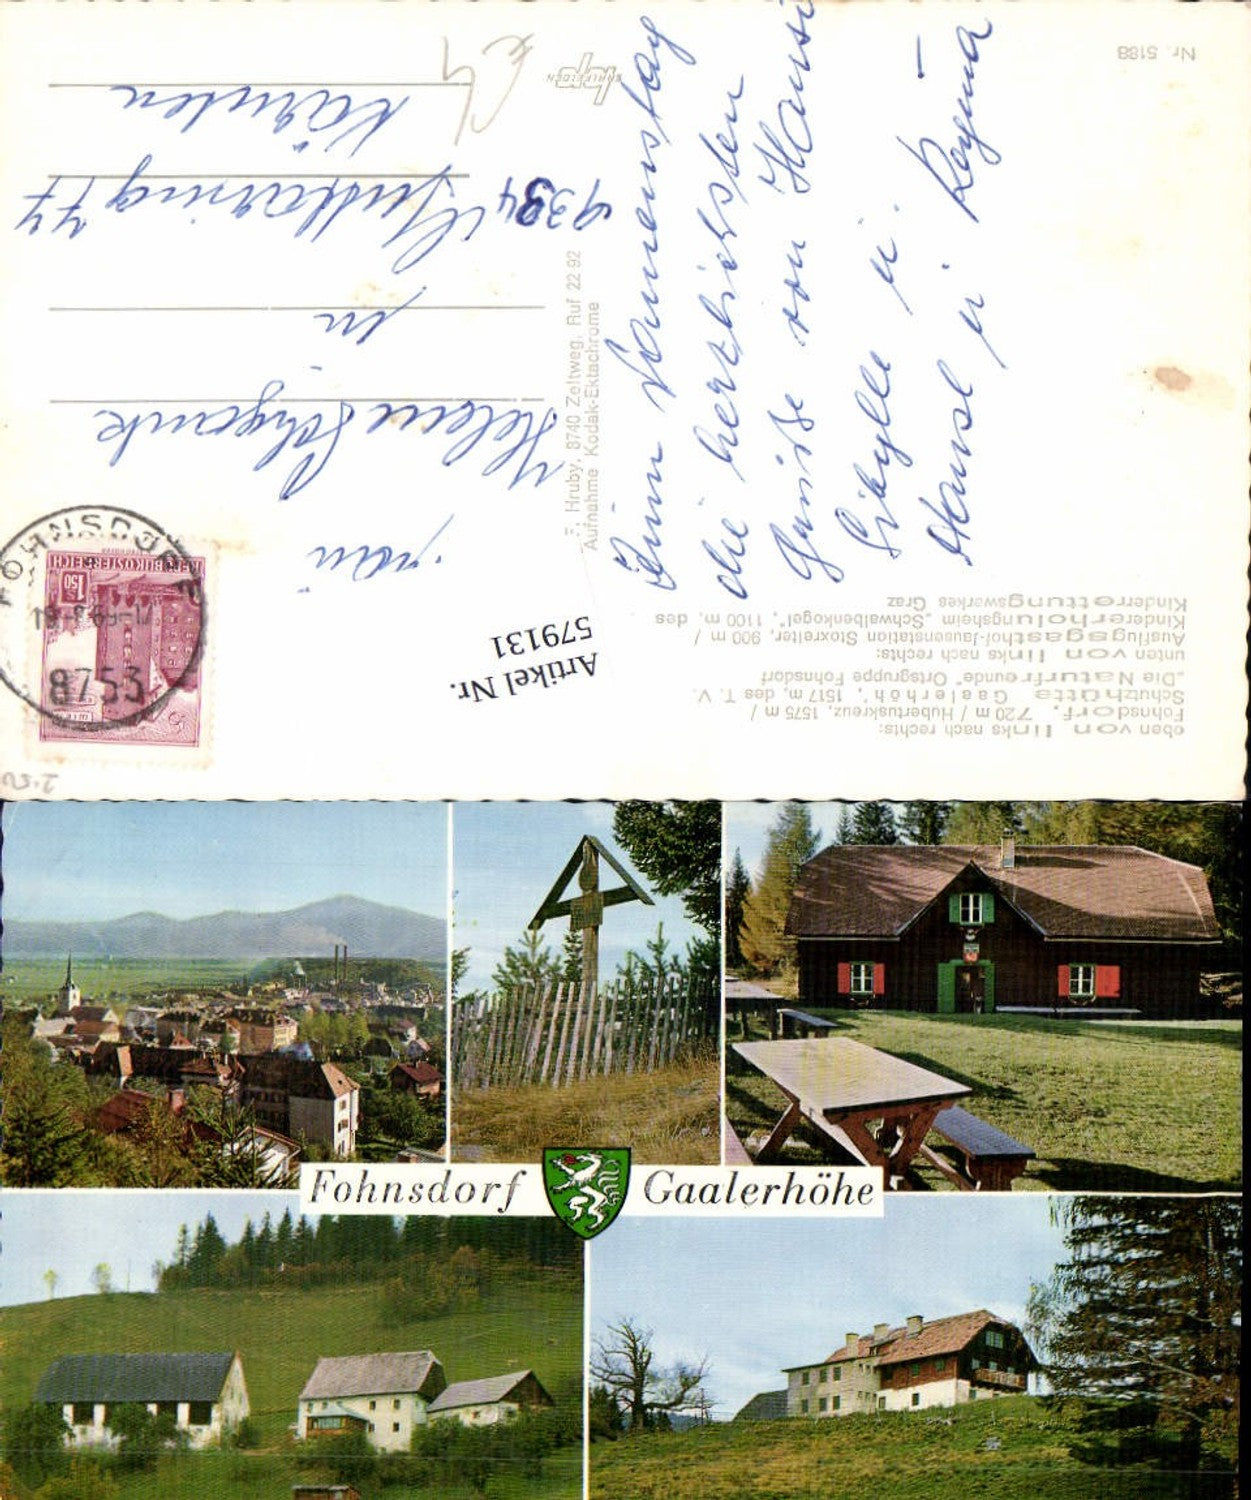 Nr. 5188
Zum Namenstag
die herzlichsten
Grüße von Hansi
Sibylle u.
Hansl u. Regina
oben von links nach rechts:
Fohnsdorf, 720 m / Hubertuskreuz, 1575 m /
Schutzhütte „Gaalerhöh", 1517 m, des T. V.
„Die Naturfreunde" Ortsgruppe Fohnsdorf
unten von links nach rechts:
Ausflugsgasthof-Jausenstation Stoxreiter, 900 m /
Kindererholungsheim „Schwalbenkogel", 1100 m, des
Kinderrettungswerkes Graz
F. Hruby, 8740 Zeltweg, Ruf 22 92
Aufnahme Kodak-Ektachrome
Artikel Nr.
579131
FOHNSDORF
8753
REPUBLIK ÖSTERREICH
1.50
Frau
Helene
in
9334
77
Kärnten
2.50
Fohnsdorf Gaalerhöhe